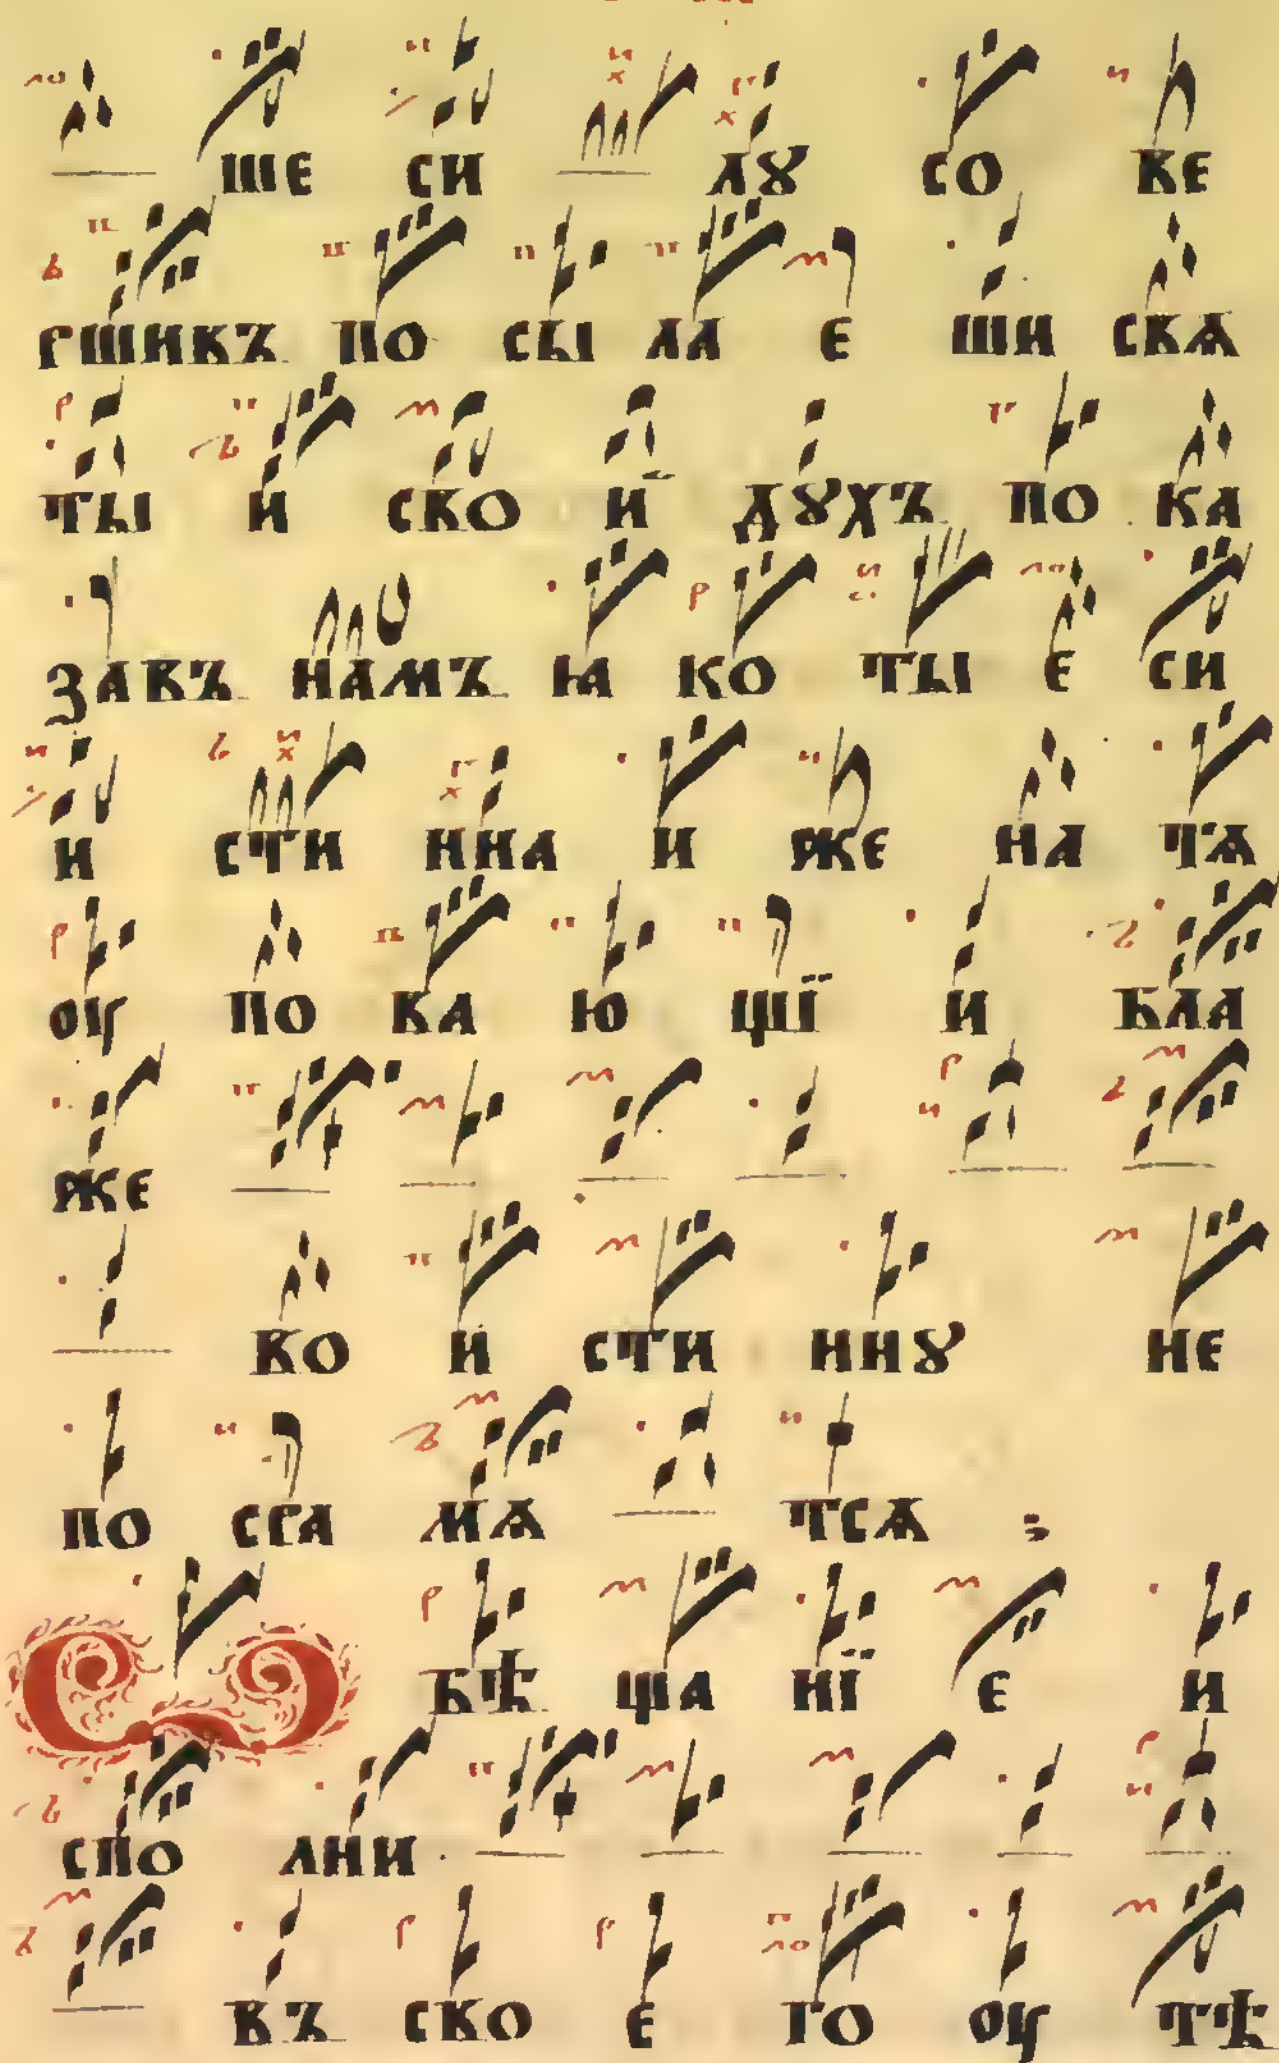 ше си лꙋ со ве
ршивъ по сы ла е ши свѧ
ты й сво и дꙋхъ по ка
завъ намъ ꙗ ко ты е си
и сти нна и же на тѧ
оу по ва ю щї и бла
же
во и сти ннꙋ не
по сра мѧ тсѧ
Ѡ бѣ ща нї е и
спо лни
въ сво е го оу тѣ